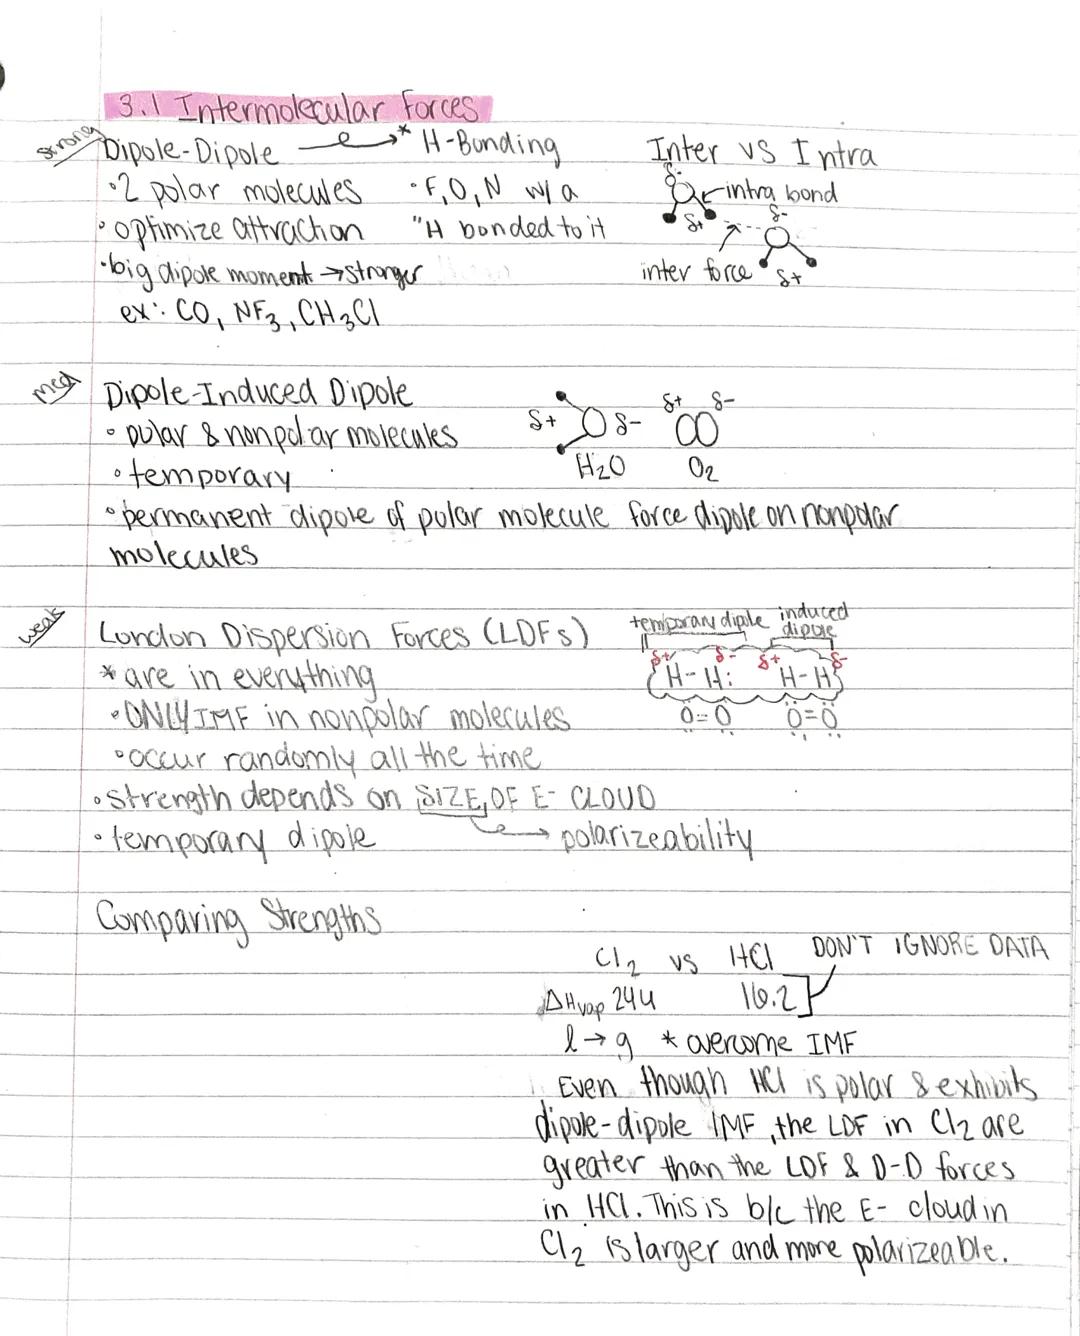 3.1 Intermolecular Forces
strong
Dipole-Dipole → * H-Bonding
• 2 polar molecules
• optimize attraction
• big dipole moment → stronger
ex: CO, NF3, CH3Cl
• F, O, N w/ a
"H bonded to it
Inter vs Intra
δ-
intra bond
δ+
δ-
inter force
δ+
med
Dipole-Induced Dipole
• polar & nonpolar molecules
• temporary
• permanent dipole of polar molecule force dipole on nonpolar
molecules
δ+ δ- δ+ δ-
H2O O2
weak
London Dispersion Forces (LDFs)
* are in everything
• ONLY IMF in nonpolar molecules
• occur randomly all the time
• strength depends on SIZE OF E- CLOUD
→ polarizeability
• temporary dipole
temporary dipole induced
dipole
δ+ δ- δ+ δ-
H-H: H-H
O=O O=O
Comparing Strengths
Cl2 vs HCl DON'T IGNORE DATA
ΔHvap 244 16.2
l → g * overcome IMF
Even though HCl is polar & exhibits
dipole-dipole IMF, the LDF in Cl2 are
greater than the LDF & D-D forces
in HCl. This is b/c the E- cloud in
Cl2 is larger and more polarizeable.